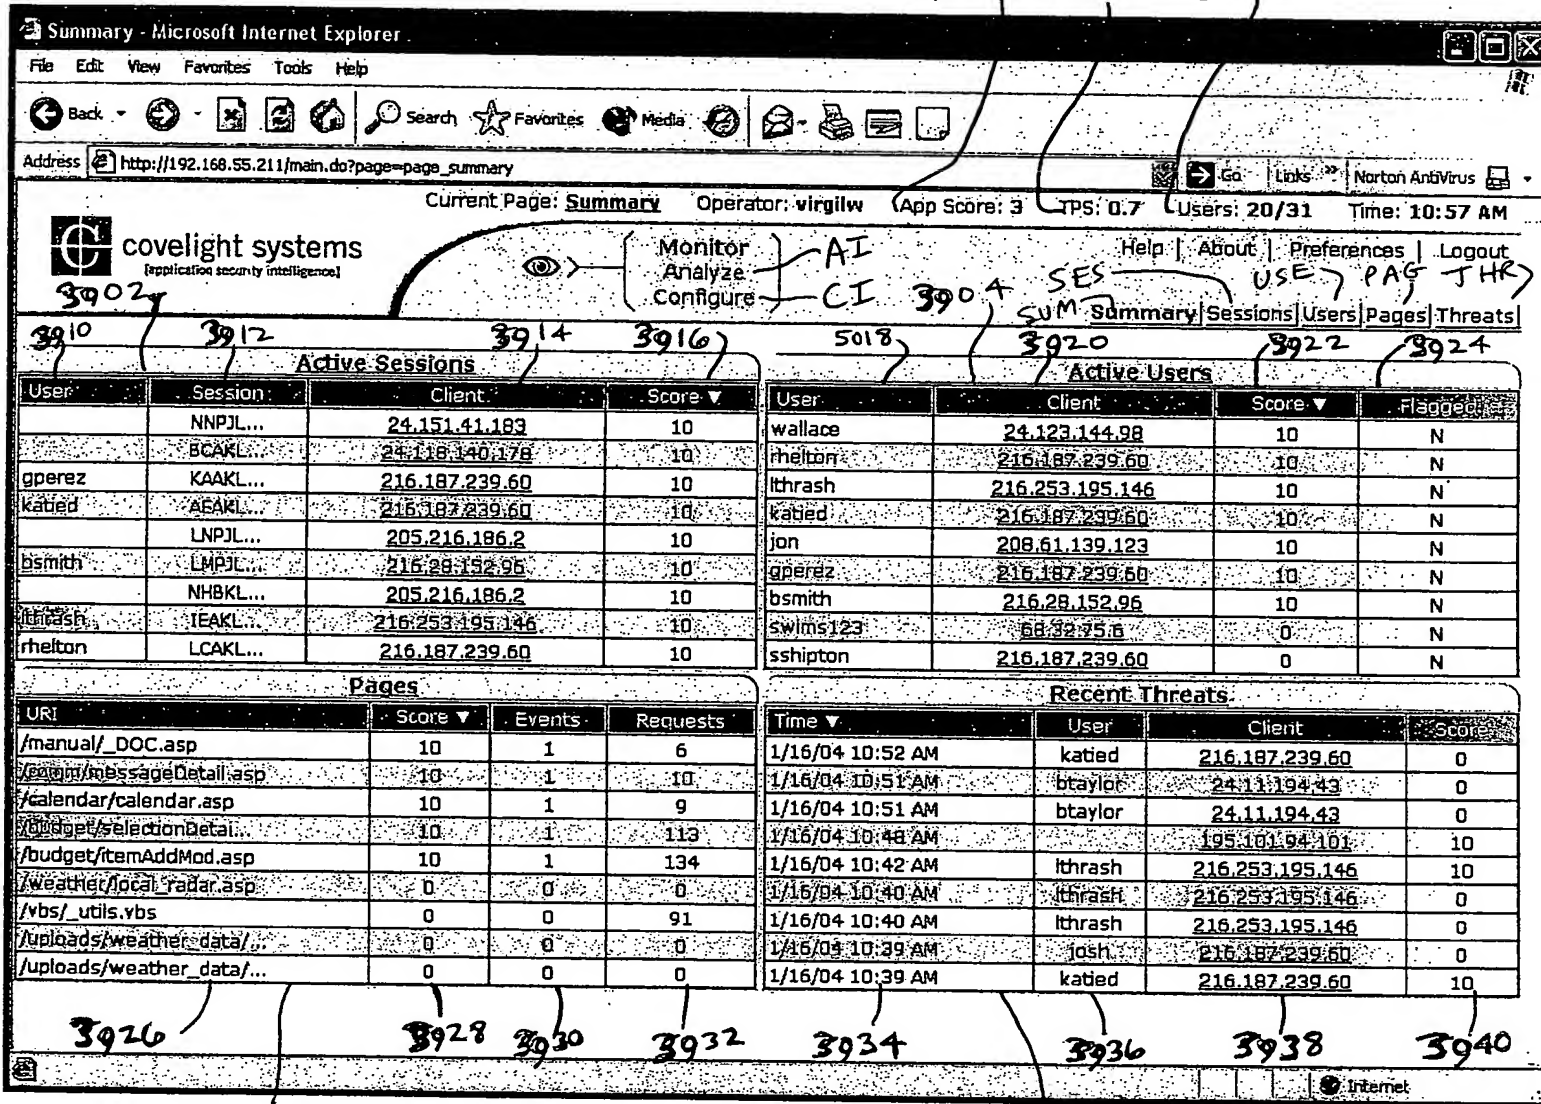 Summary - Microsoft Internet Explorer
File Edit View Favorites Tools Help
Back Search Favorites Media
Address http://192.168.55.211/main.do?page=page_summary Go Links » Norton AntiVirus
Current Page: Summary Operator: virgilw App Score: 3 TPS: 0.7 Users: 20/31 Time: 10:57 AM
covelight systems
[application security intelligence]
Monitor
Analyze AI
Configure CI
Help | About | Preferences | Logout
SUM SES USE PAG THR
Summary|Sessions|Users|Pages|Threats|
3902 3904
3910 3912 3914 3916 5018 3920 3922 3924
Active Sessions
User Session Client Score ▼
NNPJL... 24.151.41.183 10
BCAKL... 24.118.140.178 10
gperez KAAKL... 216.187.239.60 10
katied AEAKL... 216.187.239.60 10
LNPJL... 205.216.186.2 10
bsmith LMPJL... 216.28.152.96 10
NHBKL... 205.216.186.2 10
lthrash IEAKL... 216.253.195.146 10
rhelton LCAKL... 216.187.239.60 10
Active Users
User Client Score ▼ Flagged
wallace 24.123.144.98 10 N
rhelton 216.187.239.60 10 N
lthrash 216.253.195.146 10 N
katied 216.187.239.60 10 N
jon 208.61.139.123 10 N
gperez 216.187.239.60 10 N
bsmith 216.28.152.96 10 N
swims123 68.32.75.6 0 N
sshipton 216.187.239.60 0 N
Pages
URI Score ▼ Events Requests
/manual/_DOC.asp 10 1 6
/comm/messageDetail.asp 10 1 10
/calendar/calendar.asp 10 1 9
/budget/selectionDetai... 10 1 113
/budget/itemAddMod.asp 10 1 134
/weather/local_radar.asp 0 0 0
/vbs/_utils.vbs 0 0 91
/uploads/weather_data/... 0 0 0
/uploads/weather_data/... 0 0 0
Recent Threats
Time ▼ User Client Score
1/16/04 10:52 AM katied 216.187.239.60 0
1/16/04 10:51 AM btaylor 24.11.194.43 0
1/16/04 10:51 AM btaylor 24.11.194.43 0
1/16/04 10:48 AM 195.101.94.101 10
1/16/04 10:42 AM lthrash 216.253.195.146 10
1/16/04 10:40 AM lthrash 216.253.195.146 0
1/16/04 10:40 AM lthrash 216.253.195.146 0
1/16/04 10:39 AM josh 216.187.239.60 0
1/16/04 10:39 AM katied 216.187.239.60 10
3926 3928 3930 3932 3934 3936 3938 3940
Internet